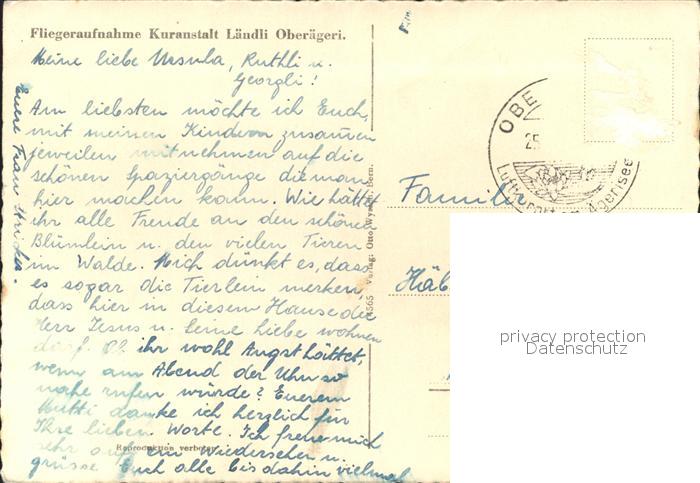 Fliegeraufnahme Kuranstalt Ländli Oberägeri.
Meine liebe Ursula, Ruthli u.
Georgli!
Am liebsten möchte ich Euch,
mit meinen Kindern zusammen
jeweilen mitnehmen auf die
schönen Spaziergänge die man
hier machen kann. Wie hättet
ihr alle Freude an den schönen
Blümlein u. den vielen Tieren
im Walde. Mich dünkt es, dass
es sogar die Tierlein merken
dass hier in diesem Hause die
Herr Jesus u. seine Liebe wohnen
darf. Ob ihr wohl Angst hättet,
wenn am Abend der Uhu so
nahe rufen würde? Euerem
Mutti danke ich herzlich für
Ihre lieben Worte. Ich freue mich
sehr auf ein Wiedersehen u.
grüsse Euch alle bis dahin vielmal
Euere Frau
Reproduktion verboten
14565 Verlag: Otto Wyss, Bern.
OBE
25.
Luftkurort am Ägerisee
Familie
Häb
privacy protection
Datenschutz